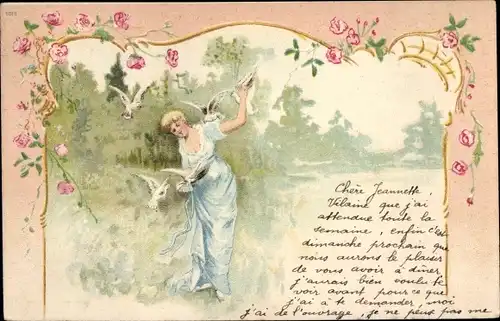 Chère Jeannette,
Vilaine que j'ai
attendue toute la
semaine, enfin c'est
dimanche prochain que
nous aurons le plaisir
de vous avoir à dîner,
j'aurais bien voulu te
voir avant pour ce que
j'ai à te demander, moi
j'ai de l'ouvrage, je ne peux pas me